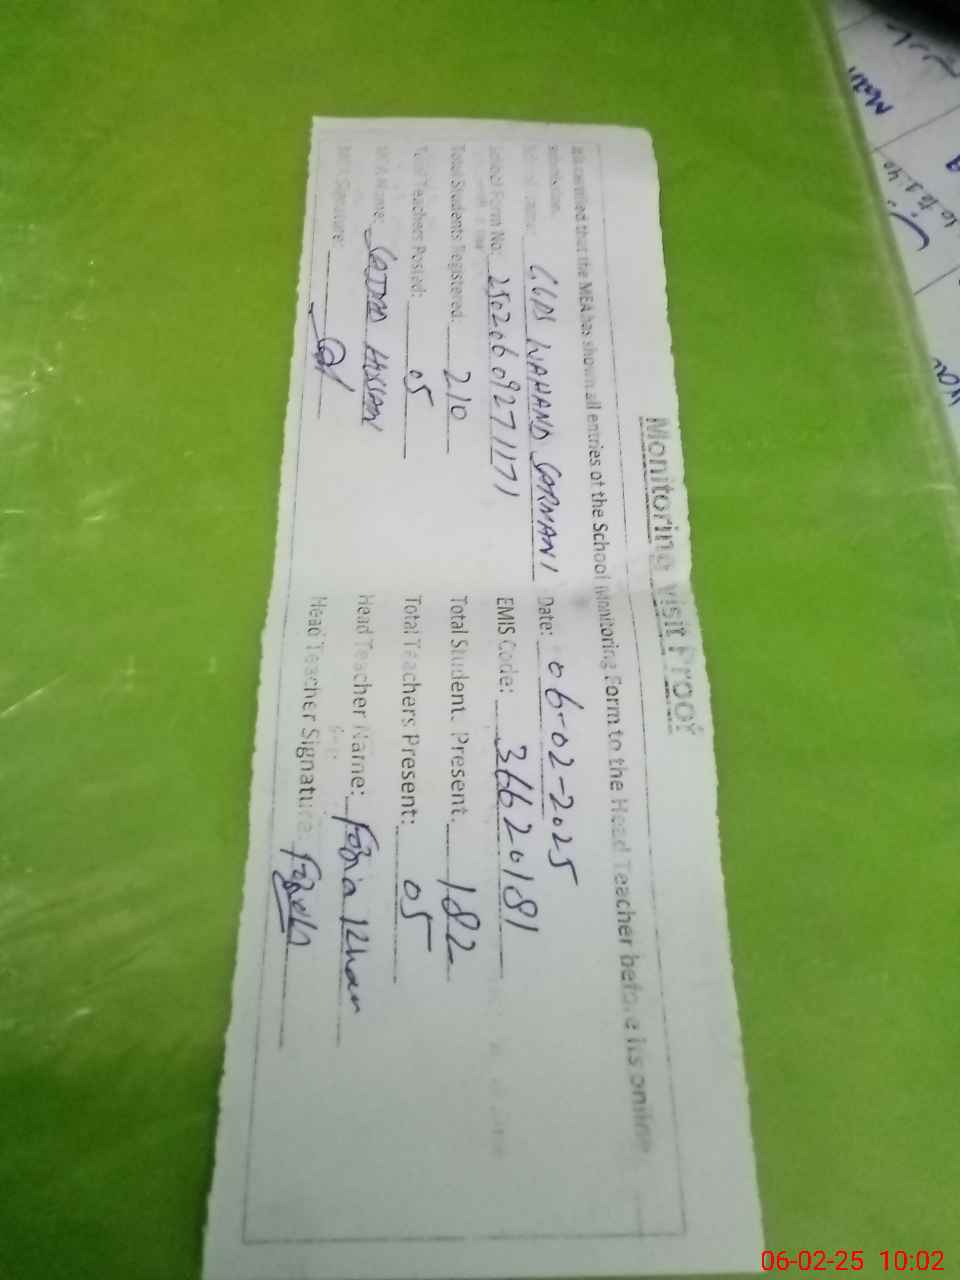 Monitoring Visit Proof
It is certified that the MEA has shown all entries of the School Monitoring Form to the Head Teacher before its online
submission.
School Name: GGPS WAHAND GORMANI Date: 06-02-2025
School Form No: 25020609271171 EMIS Code: 36620181
Total Students Registered: 210 Total Student Present: 182
Total Teachers Posted: 05 Total Teachers Present: 05
MEA Name: SAJJAD HASSAN Head Teacher Name: Fozia Khan
MEA Signature: Head Teacher Signature:
06-02-25 10:02